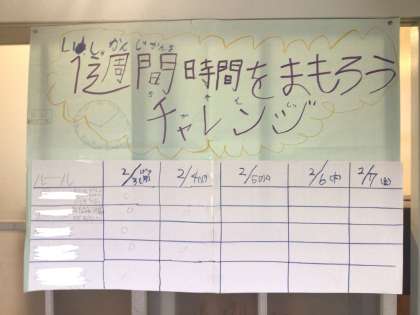 いっしゅうかんじかんを
1週間時間をまもろう
チャレンジ
ルール 2/3(月) 2/4(火) 2/5(水) 2/6(木) 2/7(金)